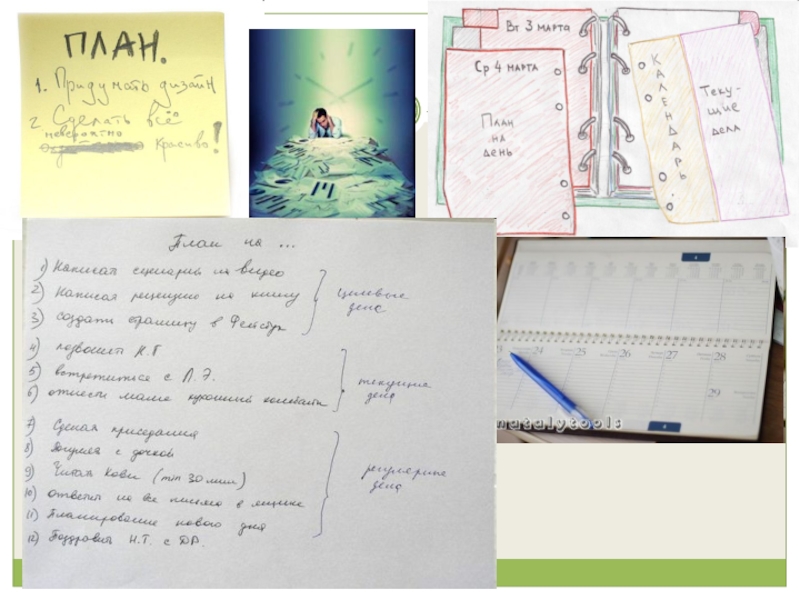 ПЛАН.
1. Придумать дизайн
2. Сделать всё
невероятно
красиво!
Вт 3 марта
Ср 4 марта
План
на
день
КАЛЕНДАРЬ
Теку-
щие
дела
План на ...
1) Написать сценарий на видео
2) Написать рецензию на книгу
3) создать страницу в Фейсбук
целевые
дела
4) позвонить Н.Т
5) встретиться с Л.Э.
6) отнести маме кухонный комбайн
текущие
дела
7) Сделал приседания
8) Погулял с дочкой
9) Читал Кови (min 30 мин)
10) ответил на все письма в ящике
11) Планирование нового дня
12) Поздравить Н.Т. с ДР.
регулярные
дела
24 25 26 27 28
29
natalytools